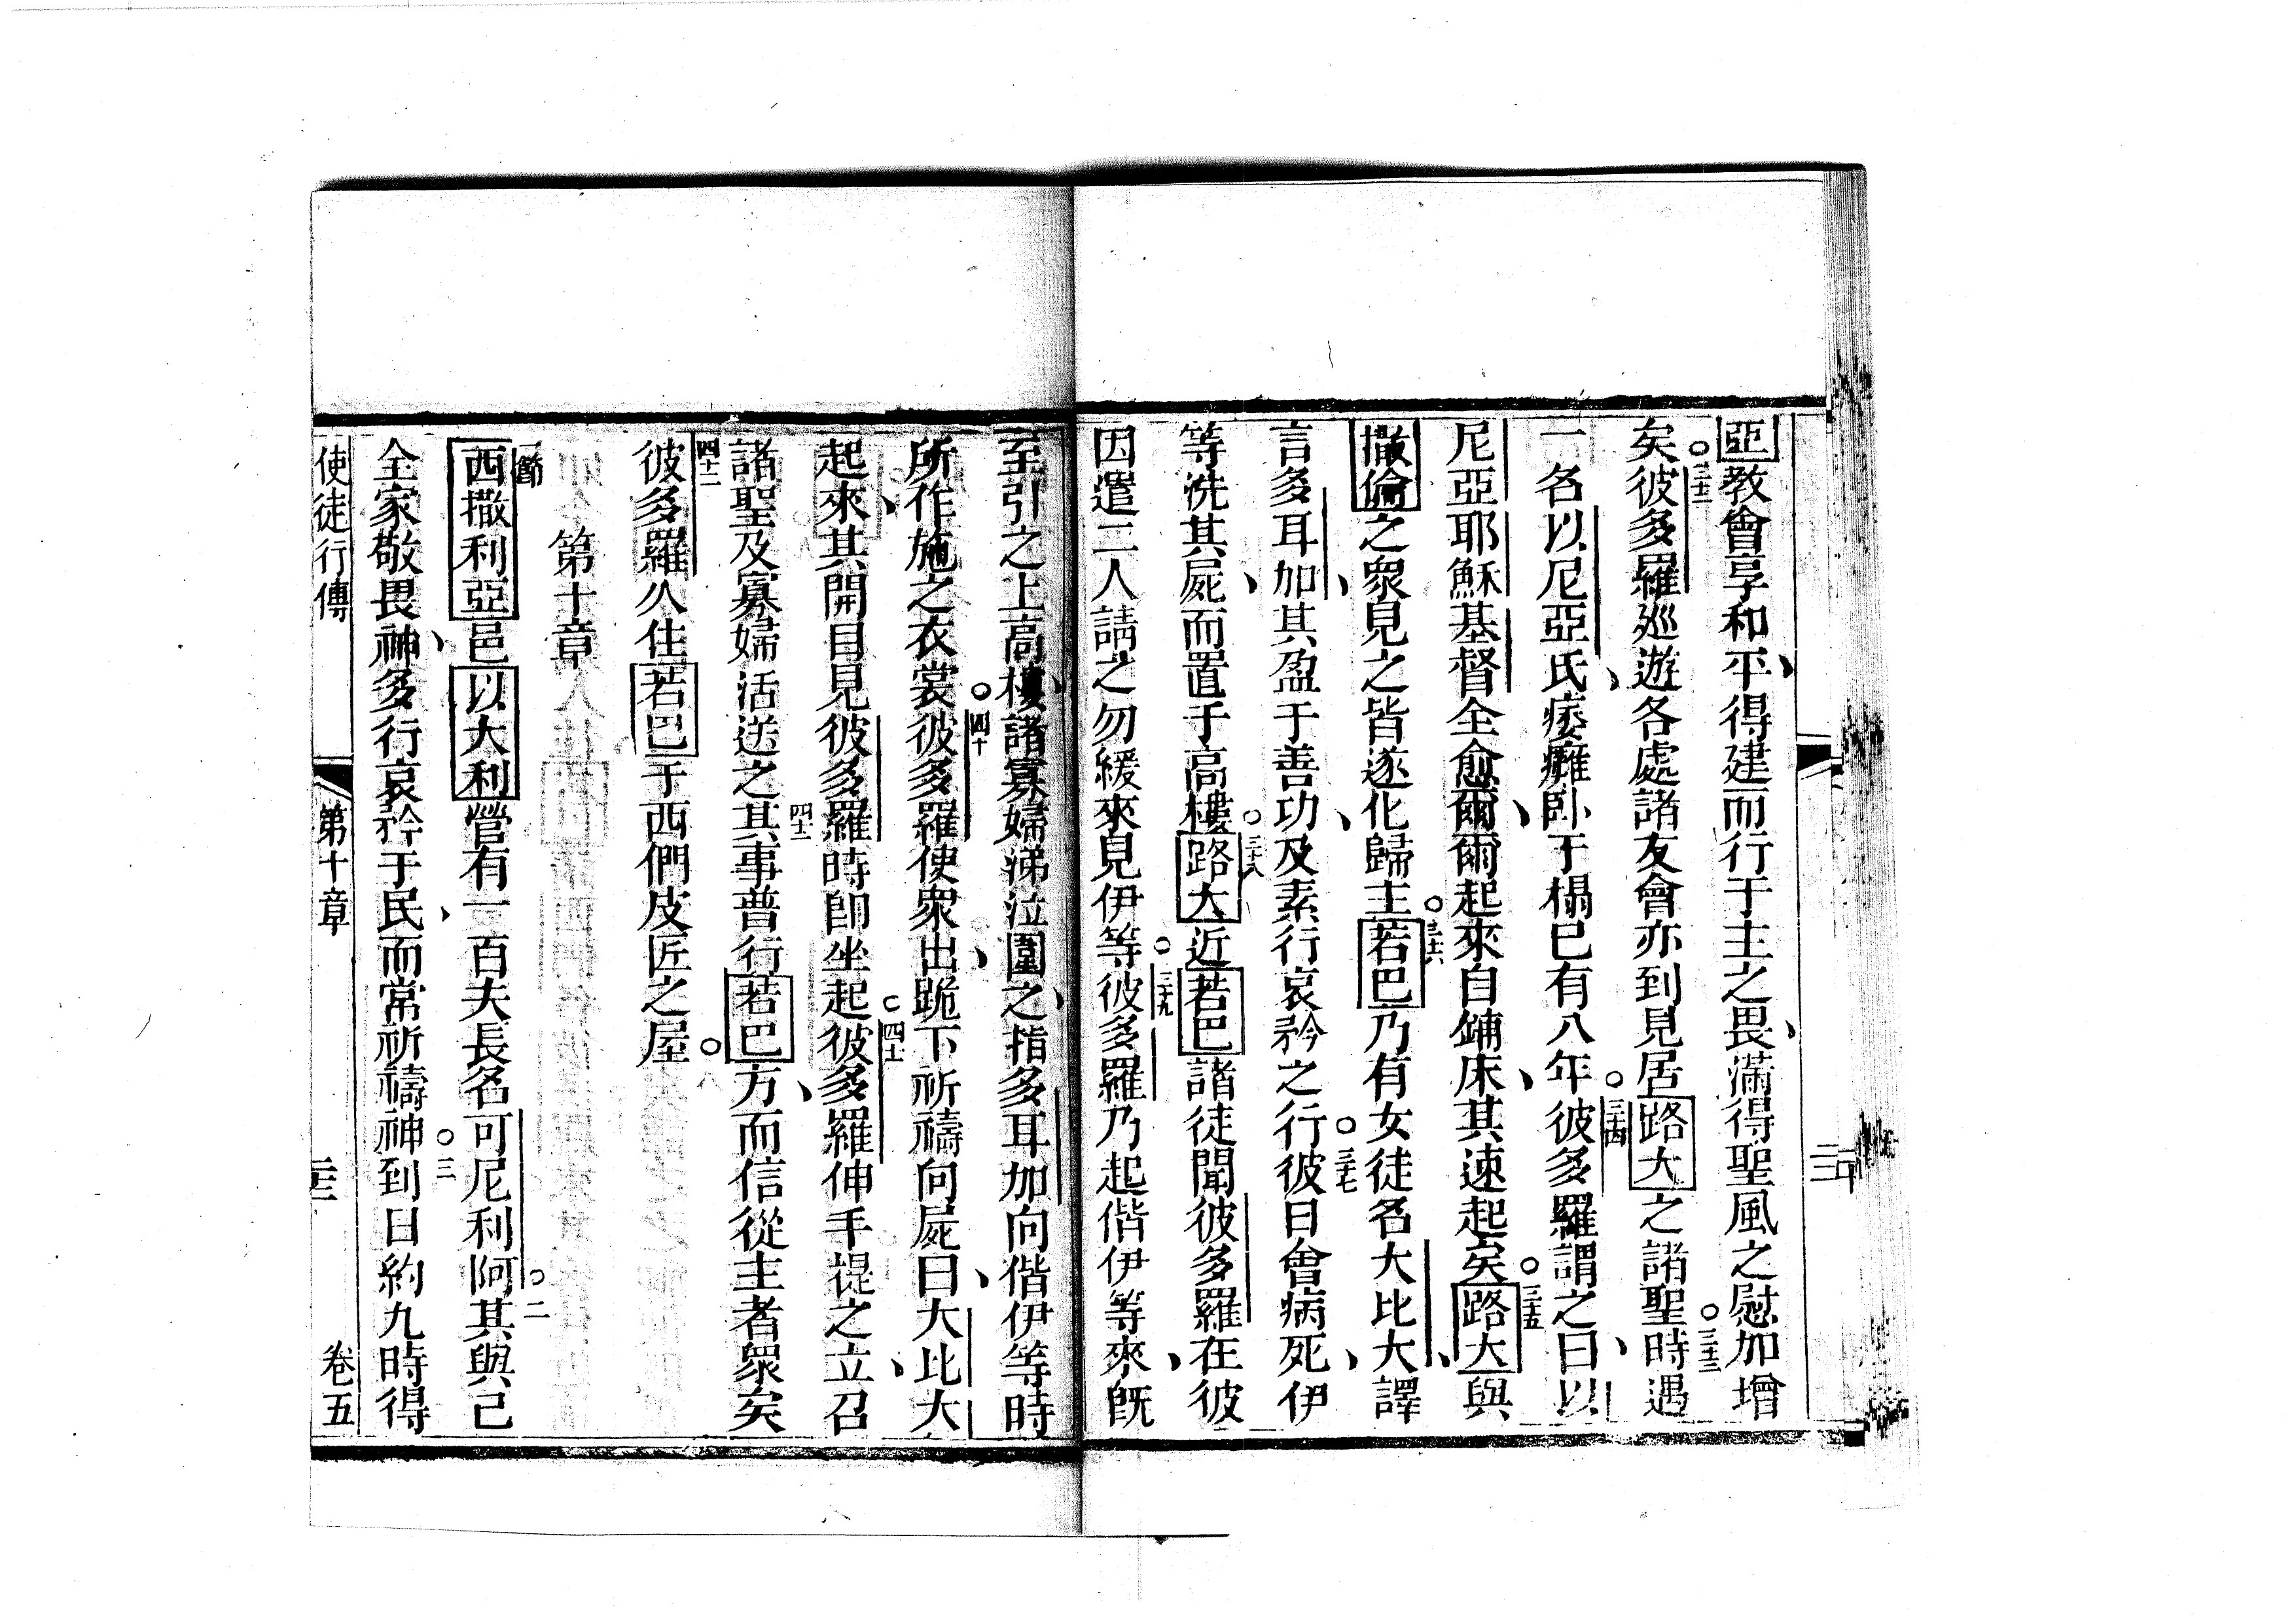 亞教會享和平、得建而行于主之畏、滿得聖風之慰加增
矣○三十二彼多羅廵遊各處諸友會亦到見居路大之諸聖○三十三時遇
一名以尼亞氏、痿癱卧于榻已有八年○三十四彼多羅謂之曰、以
尼亞耶穌基督全愈爾、爾起來自鋪床、其速起矣○三十五路大與
撒倫之眾見之皆遂化歸主○三十六若巴乃有女徒名大比大、譯
言多耳加、其盈于善功、及素行哀矜之行○三十七彼日會病死、伊
等洗其屍、而置于高樓○三十八路大近若巴諸徒聞彼多羅在彼
因遣二人請之勿緩來見伊等○三十九彼多羅乃起偕伊等來、旣
至引之上高樓、諸寡婦涕泣圍之、指多耳加向偕伊等時
所作施之衣裳○四十彼多羅使眾出、跪下祈禱向屍曰、大比大
起來、其開目見彼多羅時卽坐起○四十一彼多羅伸手提之立、召
諸聖及寡婦活送之四十二其事普行若巴方、而信從主者眾矣
四十三彼多羅久住若巴于西們皮匠之屋○
第十章
一節西撒利亞邑以大利營有一百夫長名可尼利阿○二其與己
全家敬畏神、多行哀矜于民、而常祈禱神○三到日約九時得
使徒行傳 第十章 卷五